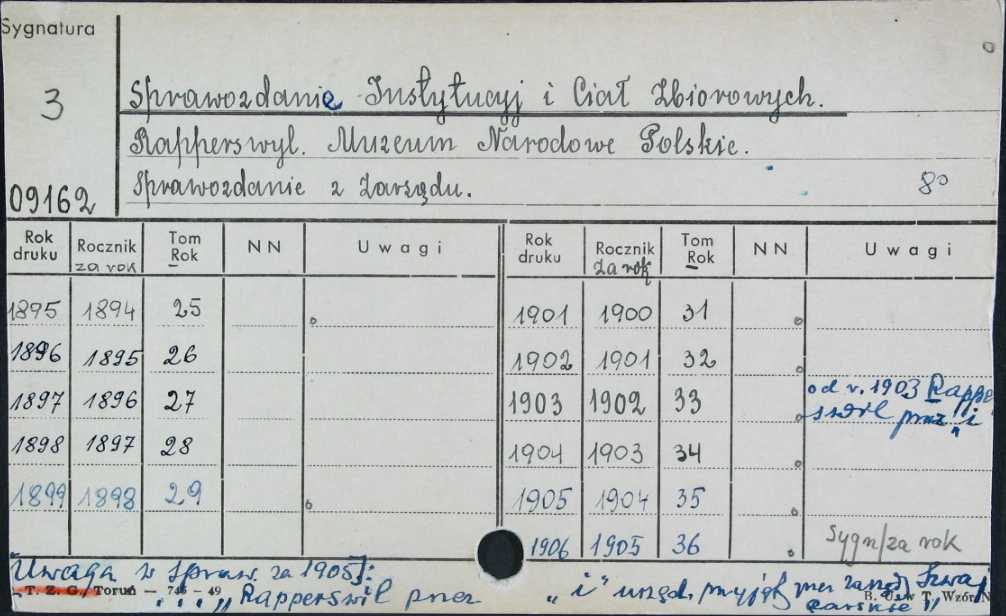 Sygnatura
3
09162
Sprawozdanie Instytucyj i Ciał Zbiorowych.
Rapperswyl. Muzeum Narodowe Polskie.
Sprawozdanie z Zarządu. 8°
Rok druku Rocznik za rok Tom Rok NN Uwagi Rok druku Rocznik Za rok Tom Rok NN Uwagi
1895 1894 25 1901 1900 31
1896 1895 26 1902 1901 32
1897 1896 27 1903 1902 33 od r. 1903 Rapperswil przez "i
1898 1897 28 1904 1903 34
1899 1898 29 1905 1904 35
1906 1905 36 Sygn/za rok
Uwaga w spraw. za 1905]:
T. Z. G., Toruń — 745 — 49
"Rapperswil przez "i" urzęd. przyjęt przez zarząd
B. U. w T. Wzór N